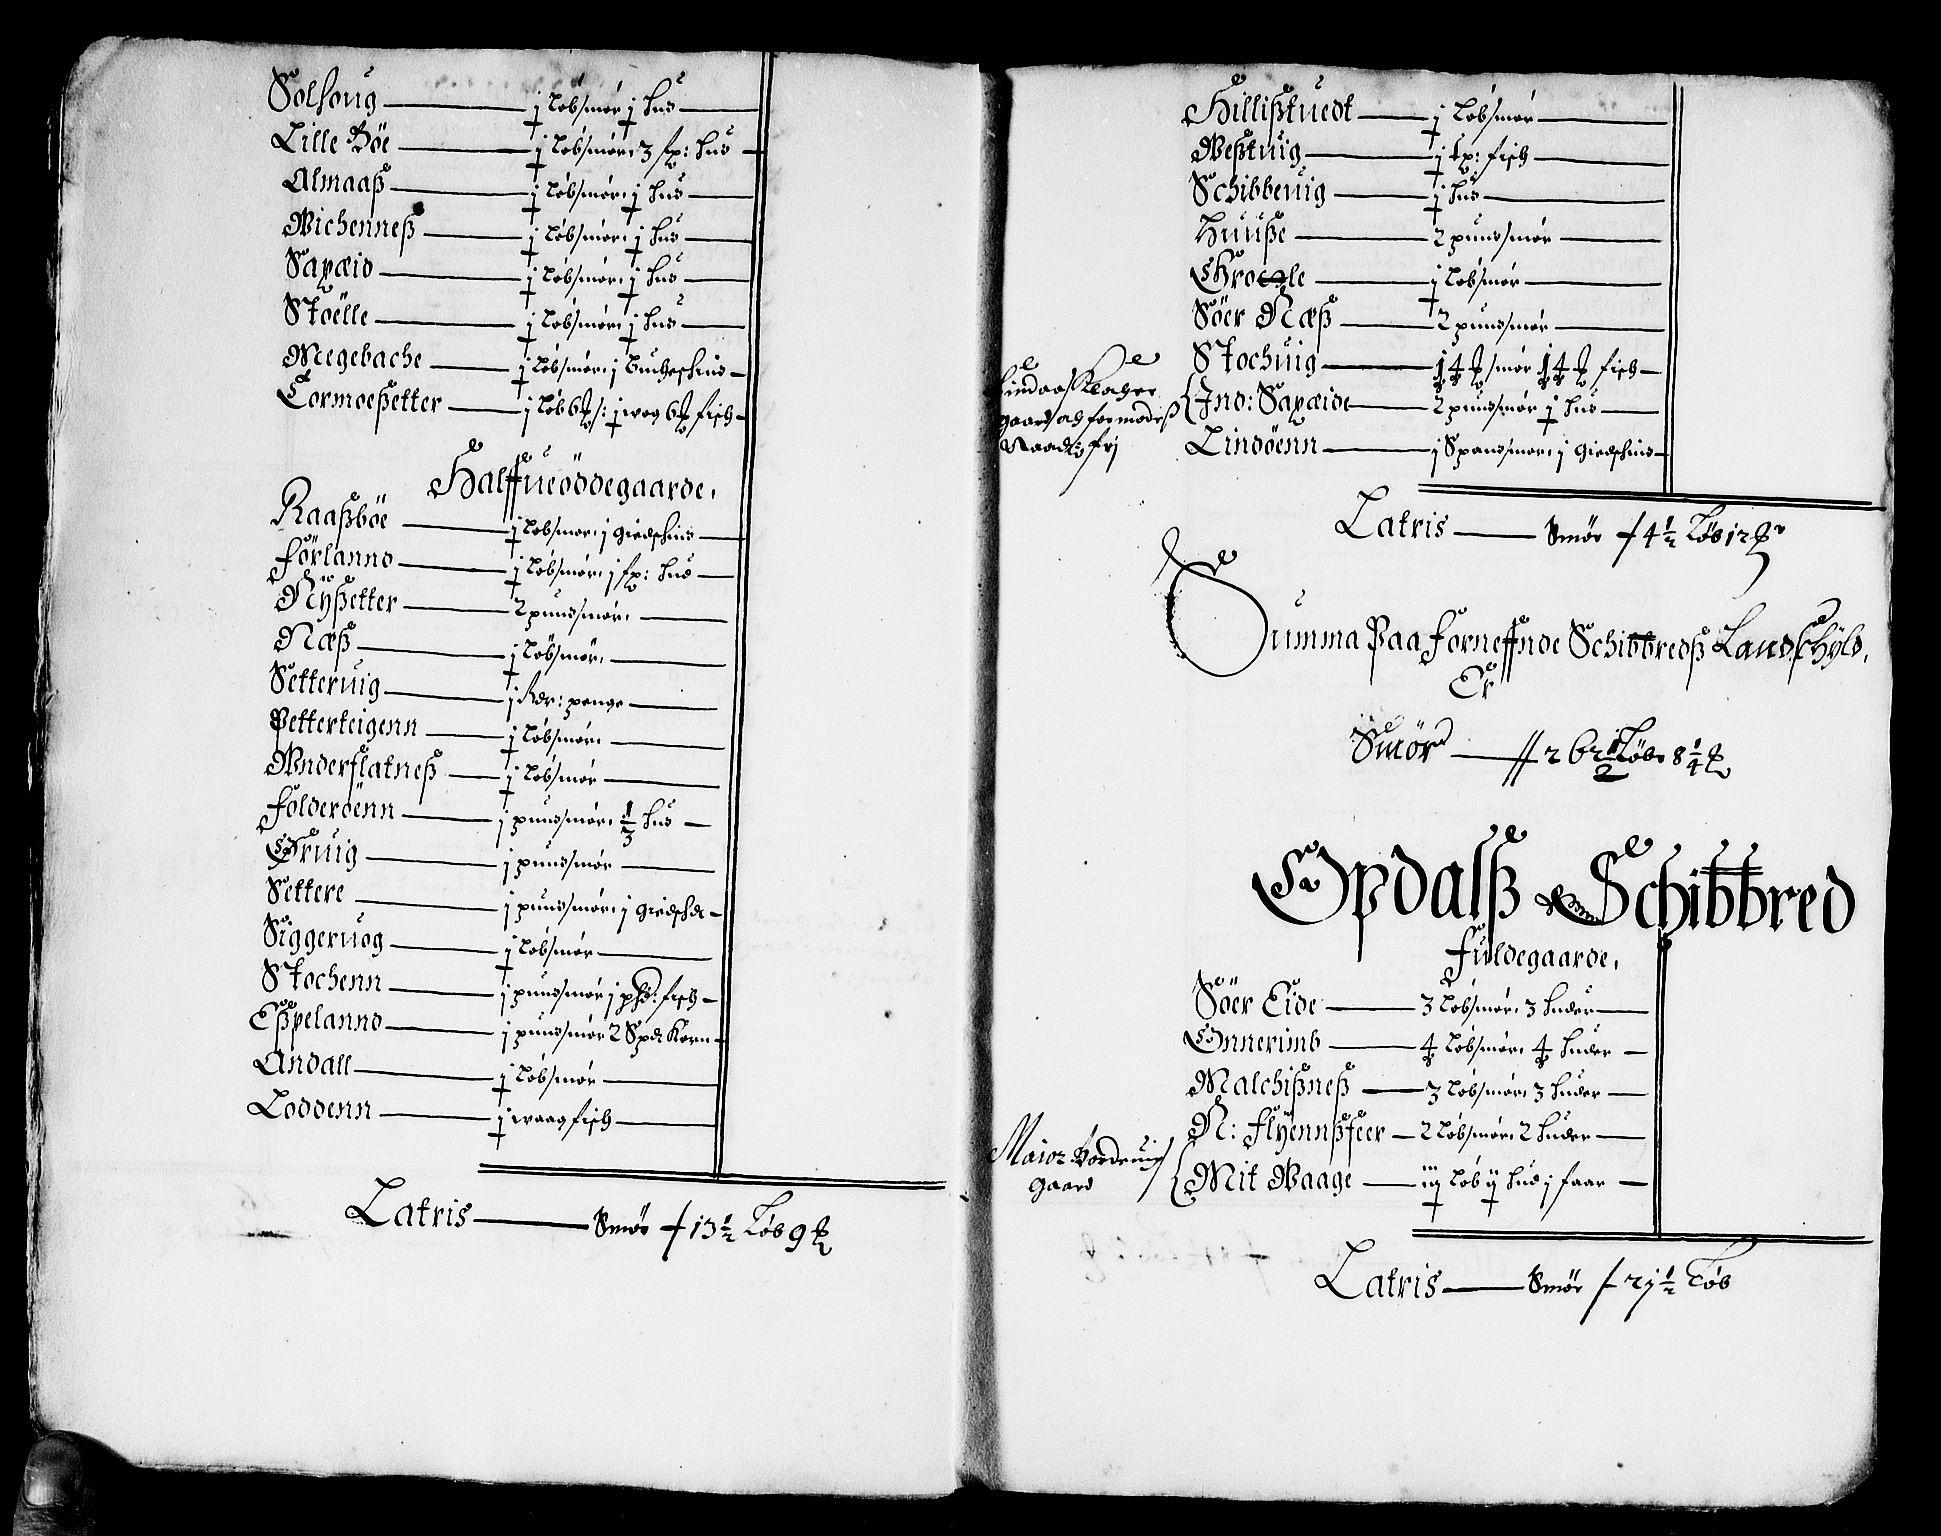 Solhoug — j Løbsmør j hud
Lille Böe — j Løbsmør: 3 fp: hud
Almaaß — j Løbsmør: j hud
Wichenneß — j Løbsmør: j hud
Sapæid — j Løbsmør: j hud
Stoëlle — j Løbsmør: j hud
Megebache — j Løbsmør: j bucheschind
Tormoeßetter — j Løb 6 s: j wog 6 fisch
Halffueöddegaarde,
Raaßböe — j Løbsmør: j giedschind
Förlannd — j Løbsmør: j fp: hud
Nÿßetter — 2 pundsmør:
Næß — j Løbsmør:
Setteruig — j Rdr: penge
Petterteigenn — j Løbsmør:
Wnderflatneß — j Løbsmør
Folderöenn — j pundsmør: 1/3 hud
Gruig — j pundsmør
Settere — j pundsmør: j giedsch
Siggeruog — j Løbsmør
Stochenn — j pundsmør j phd: fisch
Eßpelannd — j pundsmør 2 Spd Korn
Andall — j Løbsmør
Loddenn — j waag fisch
Latris — Smør 13 1/2 Løb 9
Hillißtuedt — j Løbsmør
Weßtuig — j fp: fisch
Schibbeuig — j hud
Huuße — 2 pundsmør
Grole — j Løbsmør
Söer Næß — 2 pundsmør
Stochuig — 14 smør 14 fisch
Lindaas Klocher
gaard
fri
Ind: Sapæide — 2 pundsmør j hud
Lindöenn — j Spandsmør: j giedschind
Latris — Smør 4 1/2 Løb 12
Summa Paa Forneffnde Schibbredß Landschÿld,
Er
Smør — 262 1/2 Løb: 8 1/4
Opdalß Schibbred
Fuldegaarde,
Söer Eide — 3 Løbsmør: 3 huder
Onnerimb — 4 Løbsmør: 4 huder
Malchißneß — 3 Løbsmør: 3 huder
N: Flÿennßfeer — 2 Løbsmør: 2 huder
Maior
gaard
Mit Waage — iij Løb ij hud j faar
Latris — Smør 21 1/2 Løb